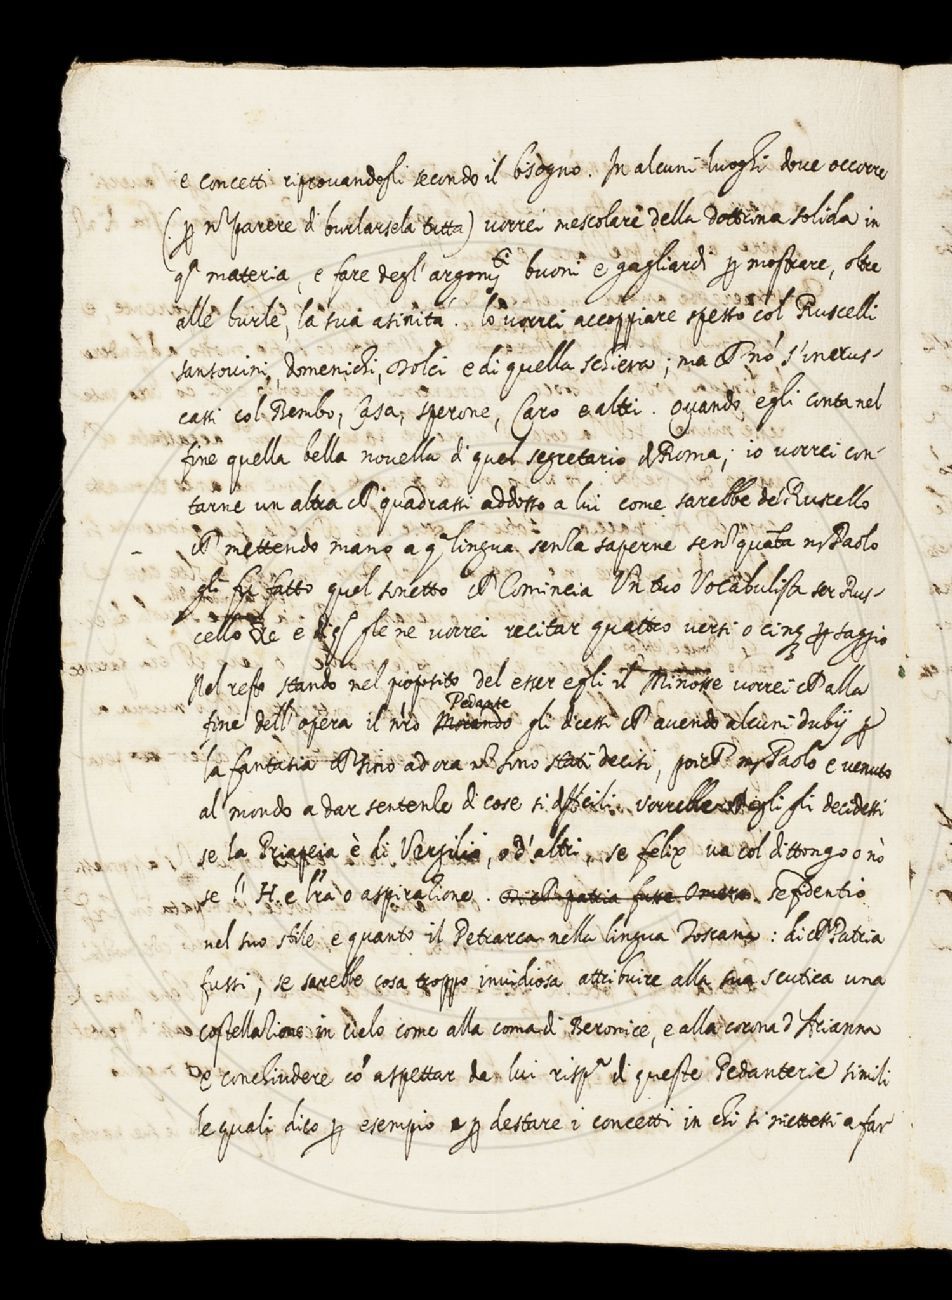 e concetti riprovandogli secondo il bisogno. In alcuni luoghi dove occorre
(p nō parere d' burlarsela tutta) vorrei mescolare della dottrina solida in
qᵃ materia, e fare degl' argomⁱ buoni e gagliardi p mostrare, oltre
alle burle, la sua asinità. lo vorrei accoppiare spesso col Ruscelli
sansovini, domenichi, Dolci e di quella schiera; ma ch nō s'incrus-
casti col Bembo, Casa, Sperone, Caro e altri. Quando egli conta nel
fine quella bella novella d' quel segretario d Roma, io vorrei con-
tarne un altra ch quadrassi addosso a lui come sarebbe del Ruscello
ch mettendo mano a qᵃ lingua senza saperne senᵒ quāta mʳ Paolo
gli fu fatto quel sonetto ch Comincia Un tuo Vocabulista ser Rus-
cello e ne vorrei recitar quattro versi o cinq p saggio
Nel resto stando nel proposito del esser egli il Minosse vorrei ch alla
Pedante
fine dell' opera il nr̄o Morando gli dicessi ch avendo alcuni dubij p
la fantasia ch sino ad ora nō sono stati decisi, poich mʳ Paolo e venuto
al mondo a dar sentenze di cose si difficili. vorrebbe ch egli gli decidessi
se la Priapeia è di Vergilio, o d' altri, se felix va col dittongo o nò
se l' H. e lr̄a o aspirazione. Di ch patria fusse Omero. se Fidentio
nel suo stile e quanto il Petrarca nella lingua Toscana: di ch Patria
fussi; se sarebbe cosa troppo invidiosa attribuire alla sua scutica una
costellazione in cielo come alla coma di Beronice, e alla corona d' Arianna
e conchiudere cō aspettar da lui rispᵃ di queste Pedanterie simili
le quali dico p esempio e p destare i concetti in chi si mettessi a far